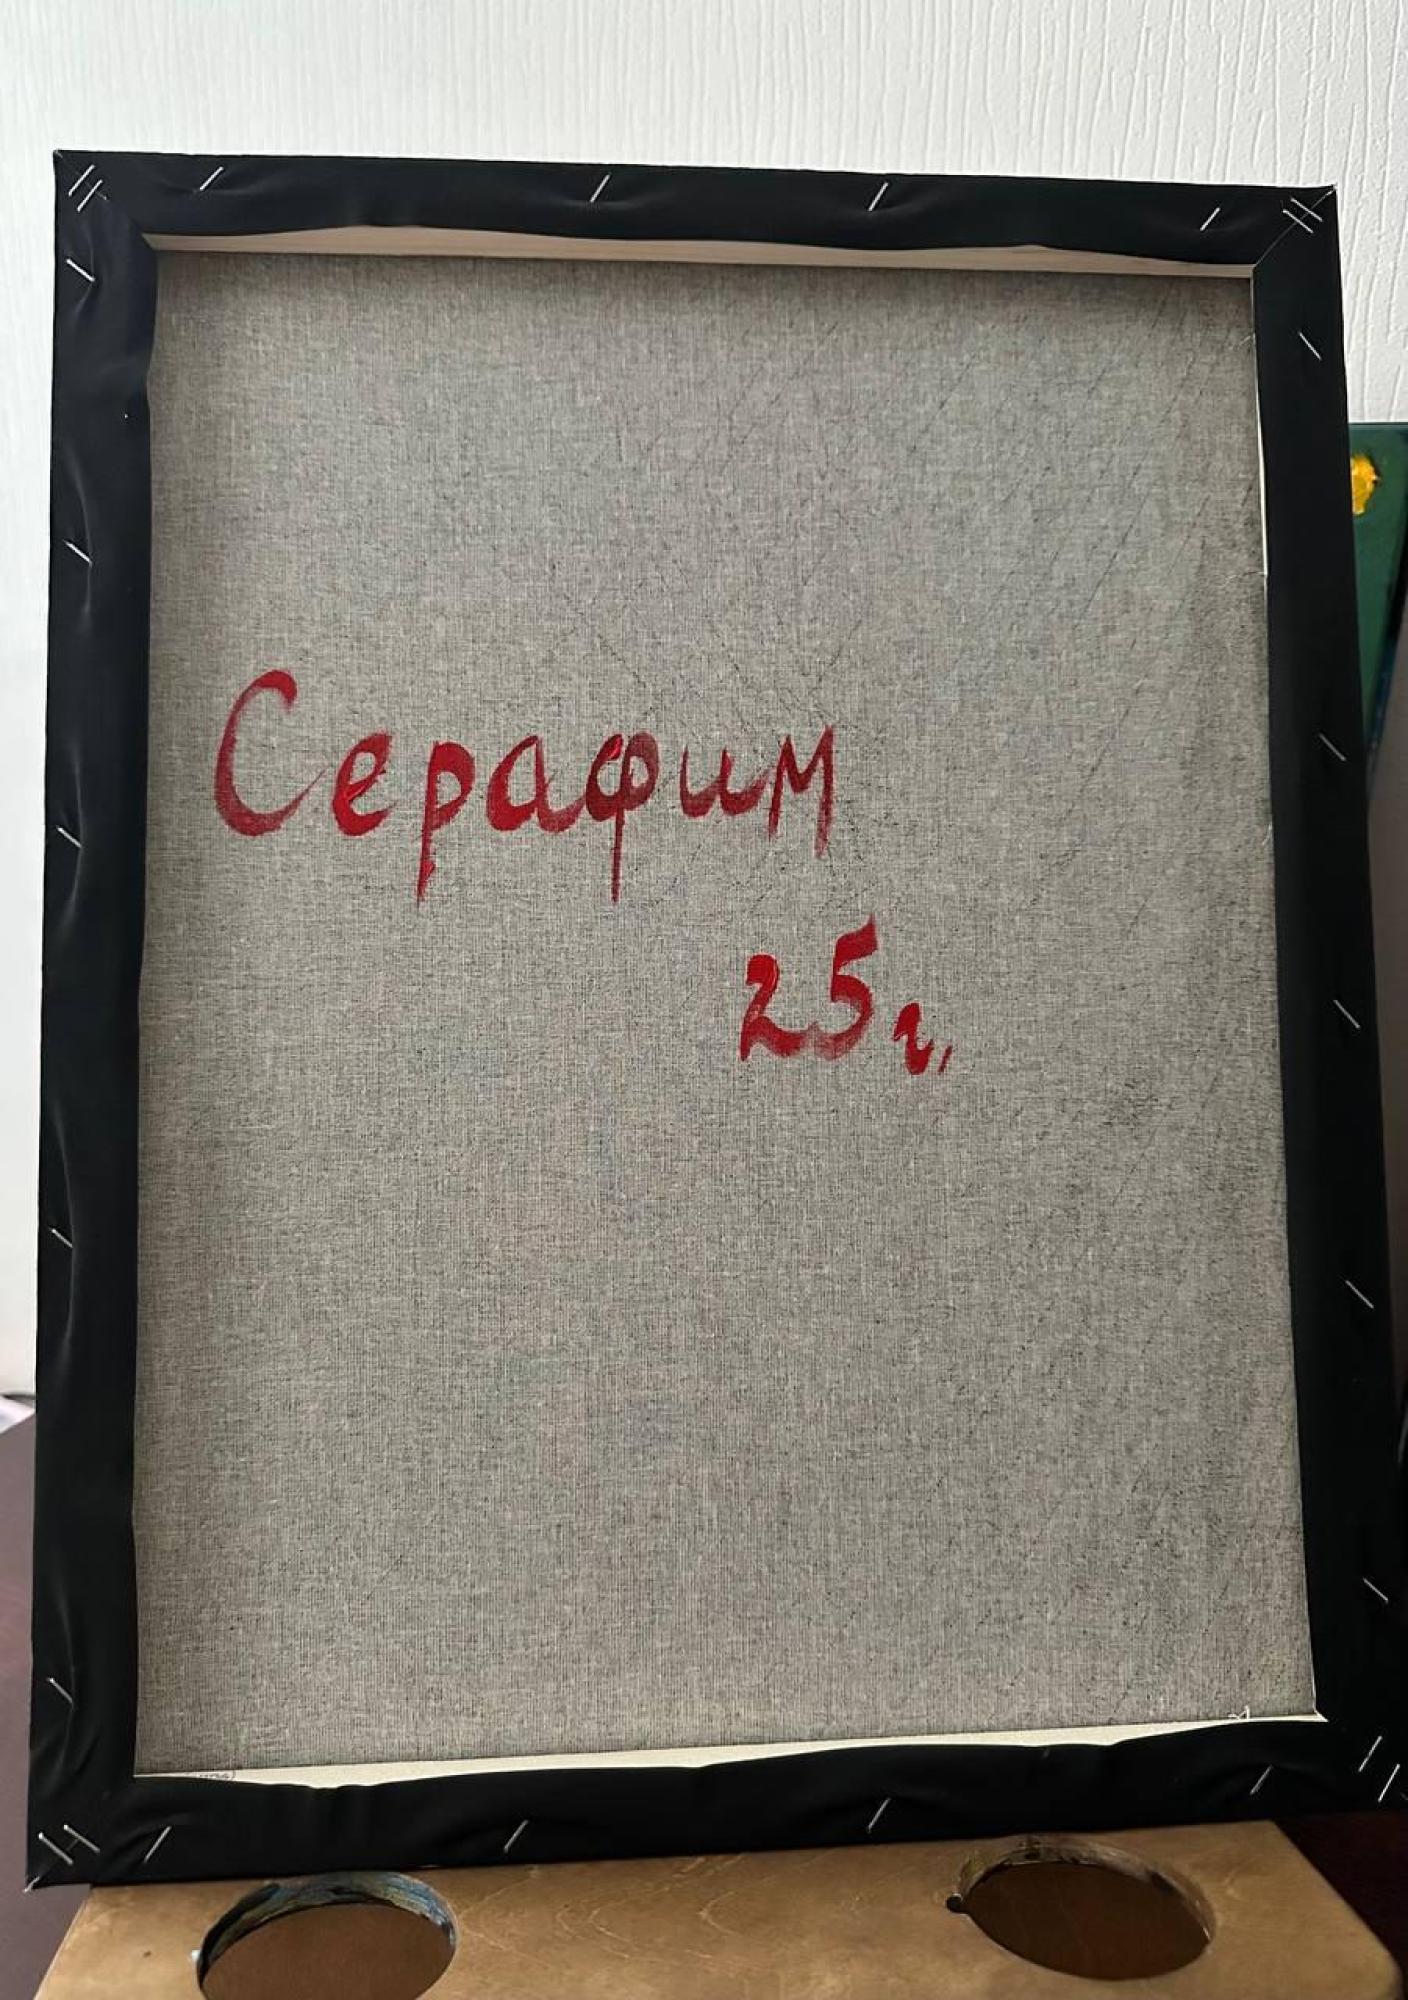 Серафим
25г.